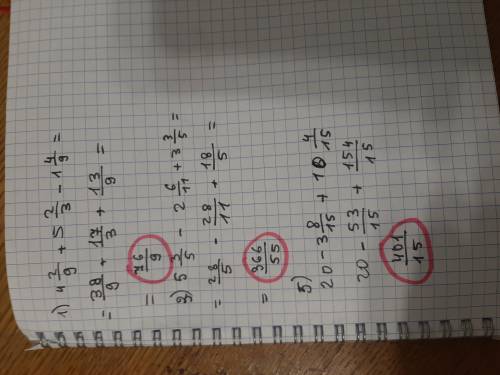 1) 4 2/9 + 5 2/3 - 1 4/9 =
= 38/9 + 17/3 + 13/9 =
= 76/9
3) 5 3/5 - 2 6/11 + 3 3/5 =
= 28/5 - 28/11 + 18/5 =
= 366/55
5)
20 - 3 8/15 + 10 4/15
20 - 53/15 + 154/15
401/15